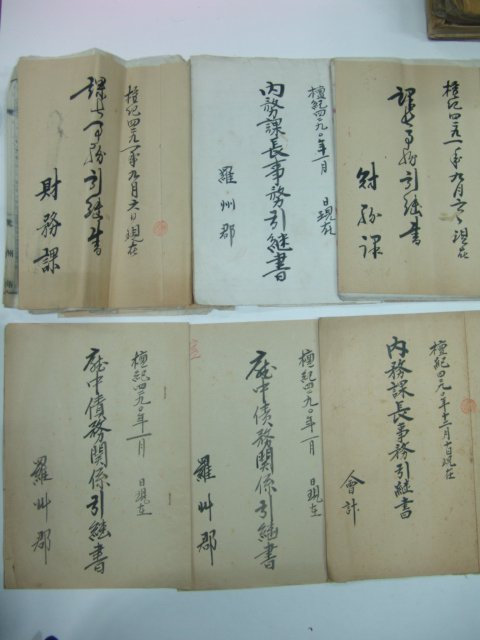 檀紀四二九一年九月六日現在
課長事務引継書
財務課
檀紀四二九〇年一月 日現在
內務課長事務引継書
羅州郡
檀紀四二九一年九月六日現在
課長事務引継書
財務課
檀紀四二九〇年一月 日現在
廳中債務関係引継書
羅州郡
檀紀四二九〇年一月 日現在
廳中債務関係引継書
羅州郡
檀紀四二九〇年十二月七日現在
內務課長事務引継書
會計